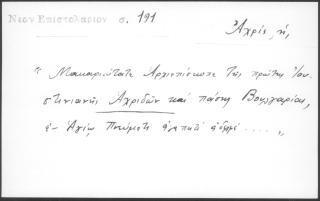 Νέον Ἐπιστολάριον σ. 191
Ἀχρίς, ἡ,
" Μακαριώτατε Ἀρχιεπίσκοπε τῆς πρώτης Ἰου-
στινιανῆς Ἀχριδῶν καὶ πάσης Βουλγαρίας,
ἐν Ἁγίῳ Πνεύματι ἀγαπητὲ ἀδελφὲ .... „